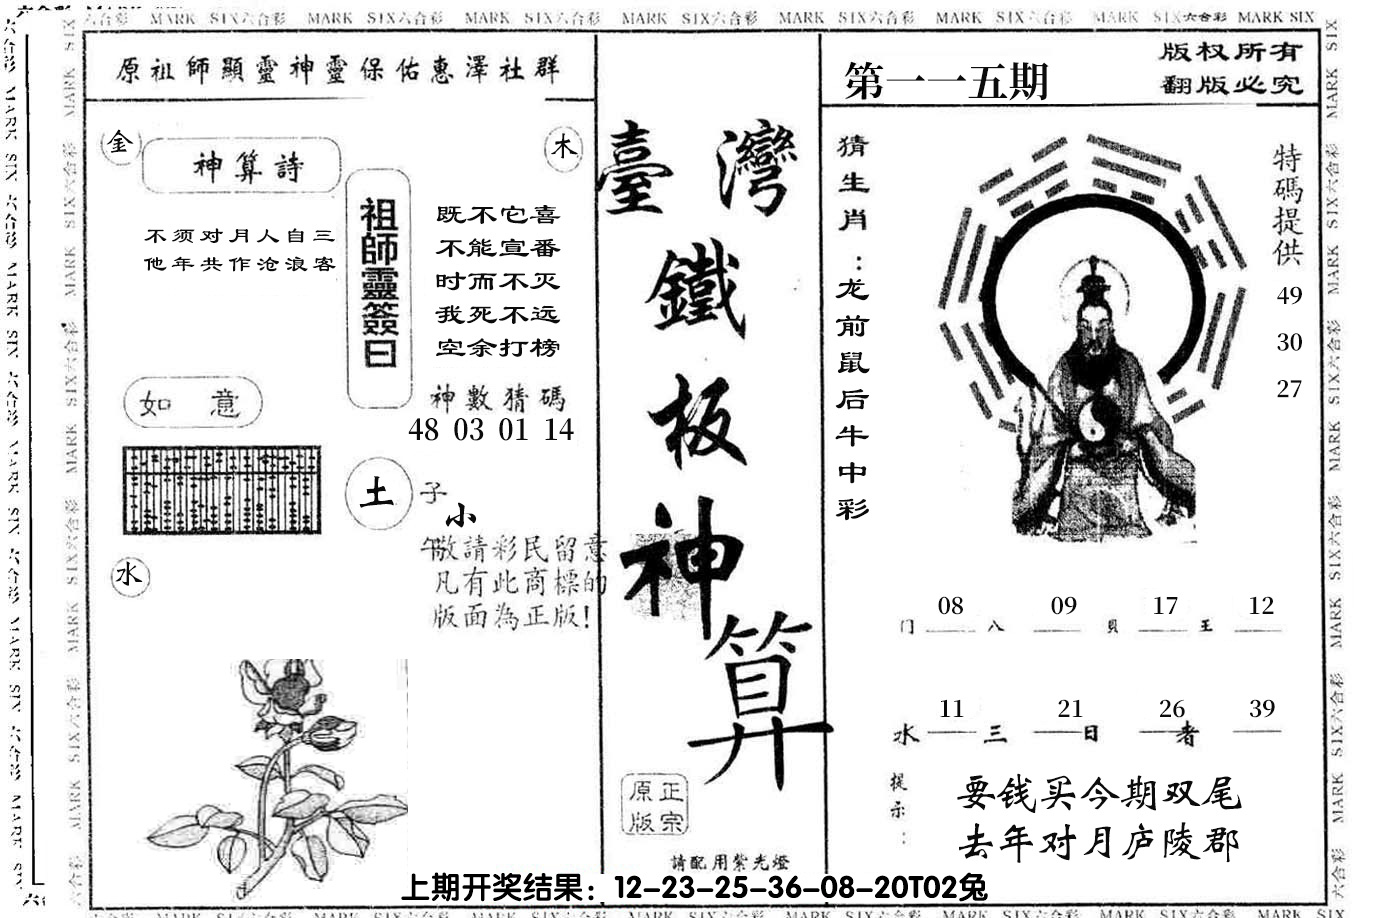 MARK SIX六合彩 MARK SIX六合彩 MARK SIX六合彩 MARK SIX六合彩 MARK SIX六合彩 MARK SIX六合彩 MARK SIX六合彩 MARK SIX
原祖師顯靈神靈保佑惠澤社群
金
神算詩
木
不须对月人自三
他年共作沧浪客
祖師靈簽曰
既不它喜
不能宣番
时而不灭
我死不远
空余打榜
神數猜碼
48 03 01 14
如 意
土
子
小
午敬請彩民留意
凡有此商標的
版面為正版!
水
臺灣
鐵
板
神
算
正宗
原版
請配用紫光燈
第一一五期
版权所有
翻版必究
猜生肖:龙前鼠后牛中彩
特碼提供
49
30
27
08 09 17 12
门 八 贝 王
11 21 26 39
水 三 日 者
提示:
要钱买今期双尾
去年对月庐陵郡
上期开奖结果：12-23-25-36-08-20T02兔